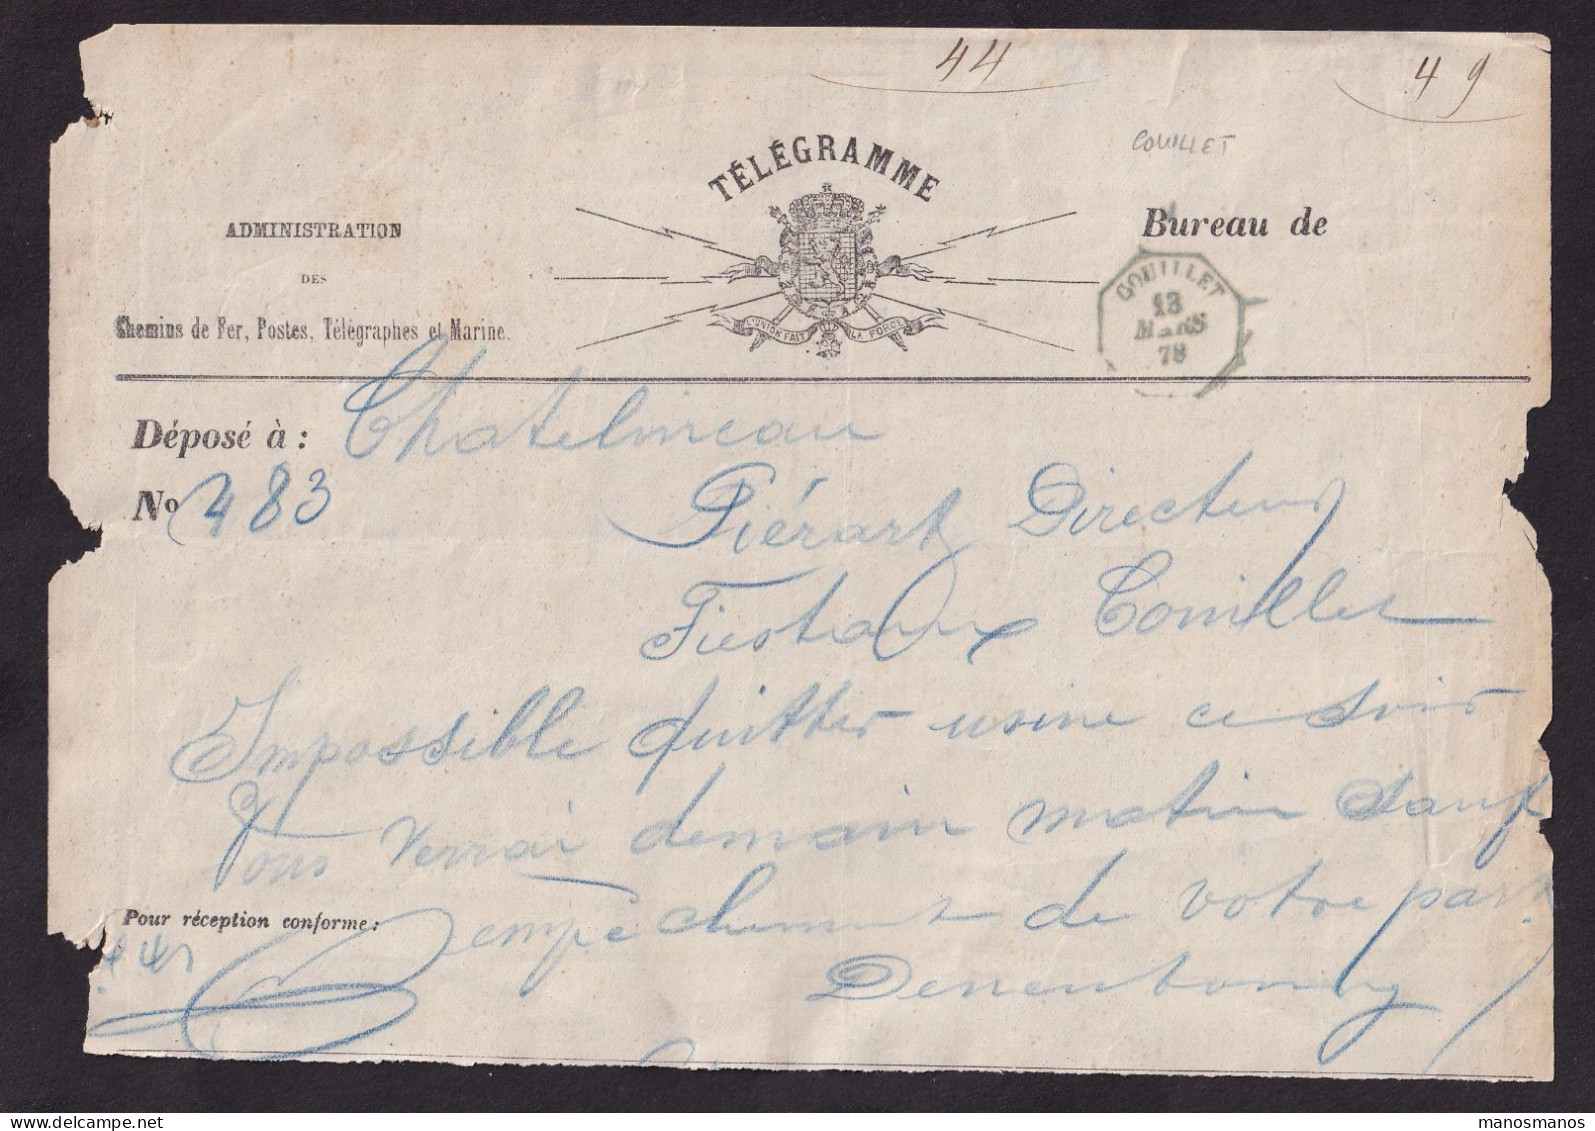 44
4 9
COUILLET
TÉLÉGRAMME
ADMINISTRATION
DES
Chemins de Fer, Postes, Télégraphes et Marine.
L'UNION FAIT LA FORCE
Bureau de
COUILLET
13
MARS
78
Déposé à : Chatelineau
No 483
Piérart Directeur
Fiestaux Couillet
Impossible quitter usine ce soir
Vous verrai demain matin sauf
empêchement de votre part
Pour réception conforme :
manosmanos